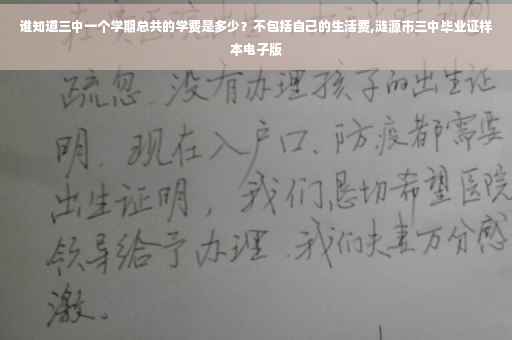 谁知道三中一个学期总共的学费是多少？不包括自己的生活费,涟源市三中毕业证样
本电子版
疏忽.没有办理孩子的出生证
明.现在入户口、防疫都需要
出生证明，我们恳切希望医院
领导给予办理.我们夫妻万分感
激。